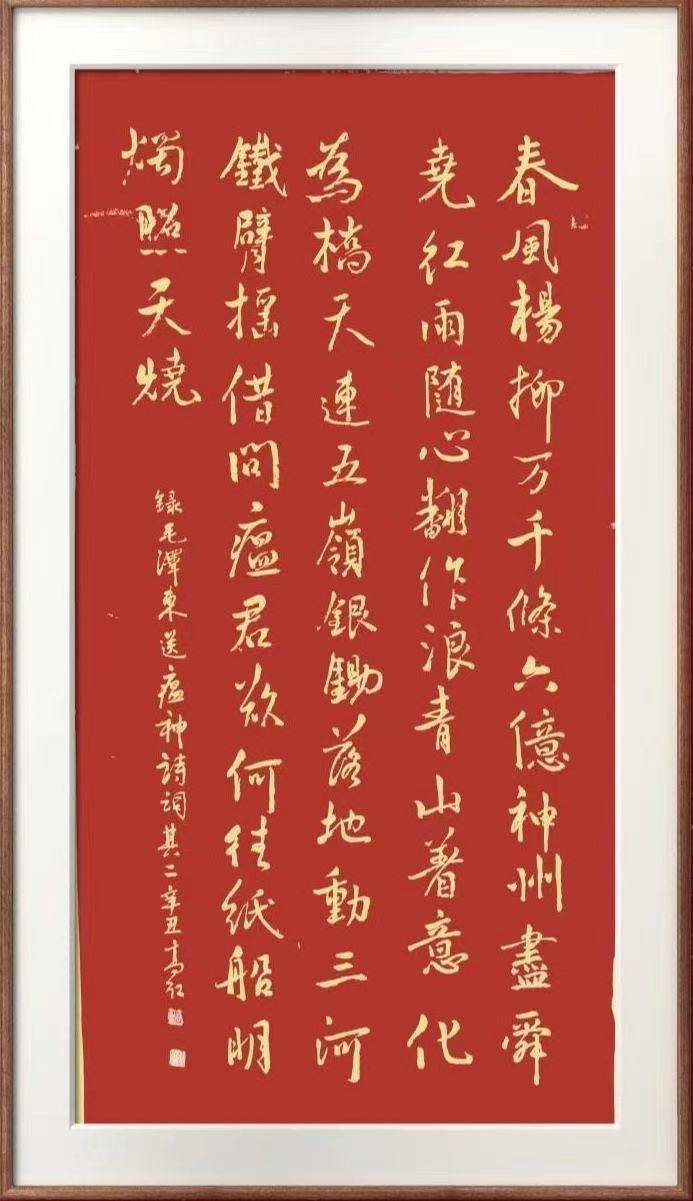 春風楊柳万千條六億神州盡舜
堯紅雨随心翻作浪青山着意化
為橋天連五嶺銀鋤落地動三河
鐵臂摇借問瘟君欲何往紙船明
燭照天燒
録毛澤東送瘟神詩詞其二辛丑高紅